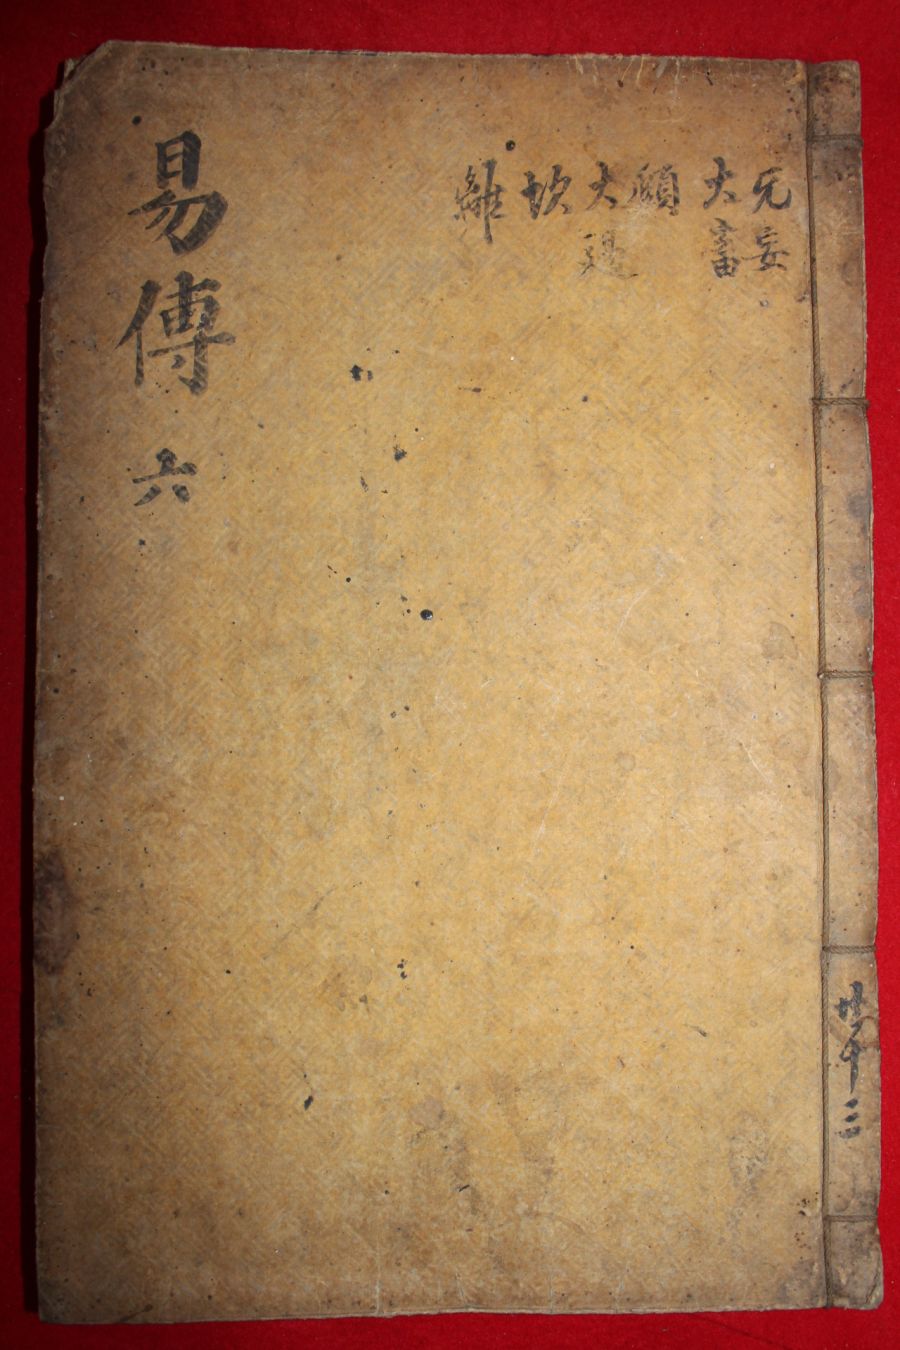 无妄
大畜
頤
大過
坎
離
易傳 六